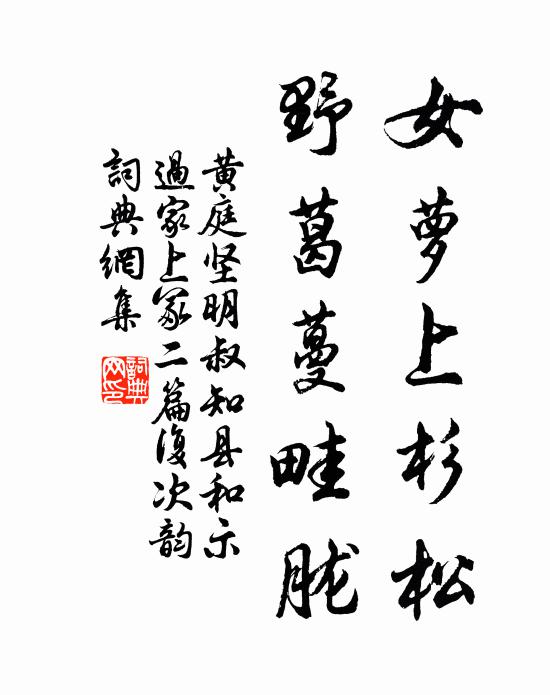 女萝上杉松
野葛蔓畦胧
黄庭坚明叔知县和示
過家上冢二篇復次韵
詞典網集
詞典网印